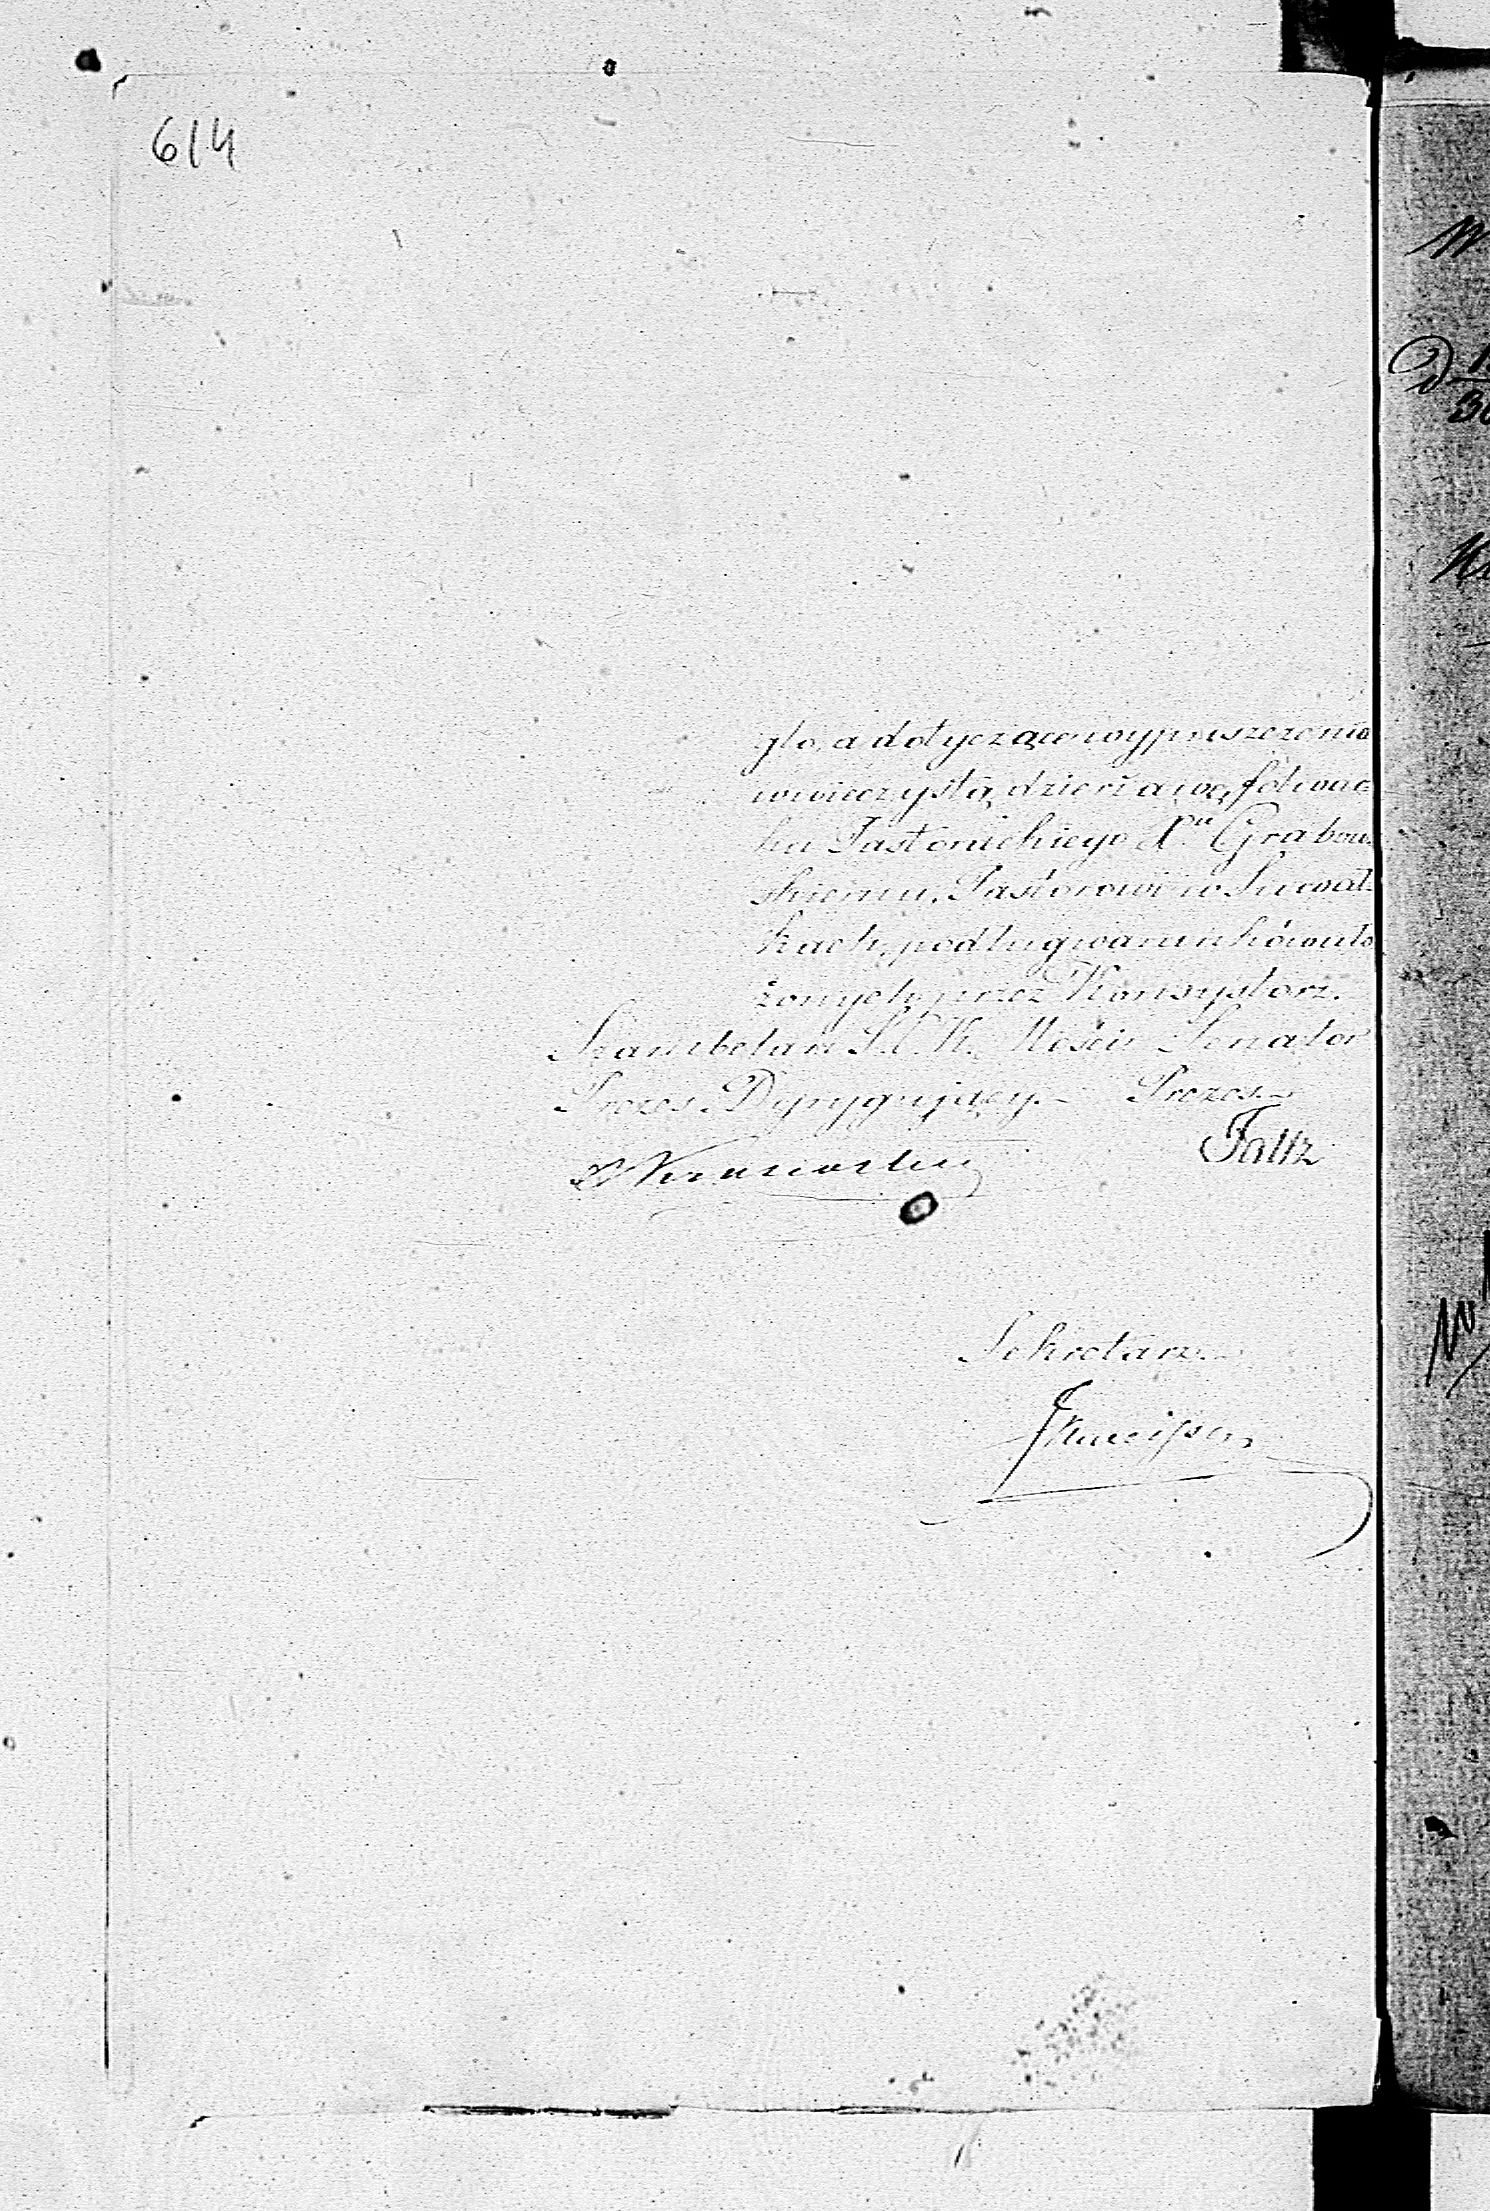 614
gło, a dotyczące wypuszczenia
w wieczystą dzierżawę folwar
ku Pastorskiego Xu Grabow-
skiemu, Pastorowi w Suwał-
kach, podług warunków uło
żonych przez Konsystorz.
Szambelan J. C. K. Mości Senator
Prezes Dyrygujący. Prezes
Faltz
Sekretarz